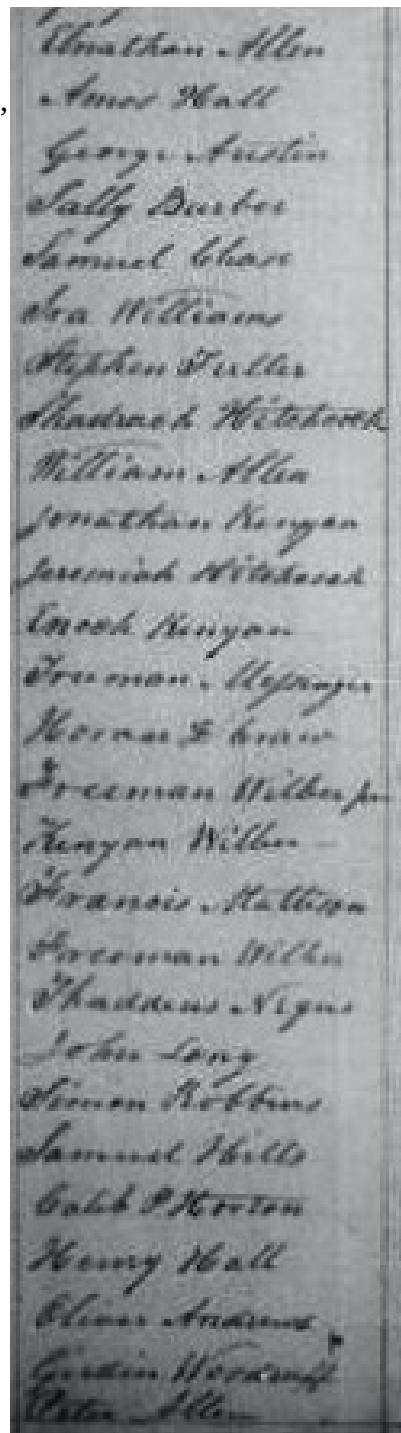 Elnathan Allen
Amos Hall
,
George Austin
Sally Barber
Samuel Chase
Ira Williams
Stephen Fuller
Shadrach Hitchcock
William Allen
Jonathan Kenyon
Jeremiah Hitchcock
Enoch Kenyon
Truman Messenger
Freeman Wilber Jr
Kenyon Wilber
Francis Mattison
Freeman Wilber
Thaddeus Negus
John Long
Simon Robbins
Samuel Hills
Caleb P. Horton
Henry Hall
Oliver Andrews
Woodruff
Peter Allen